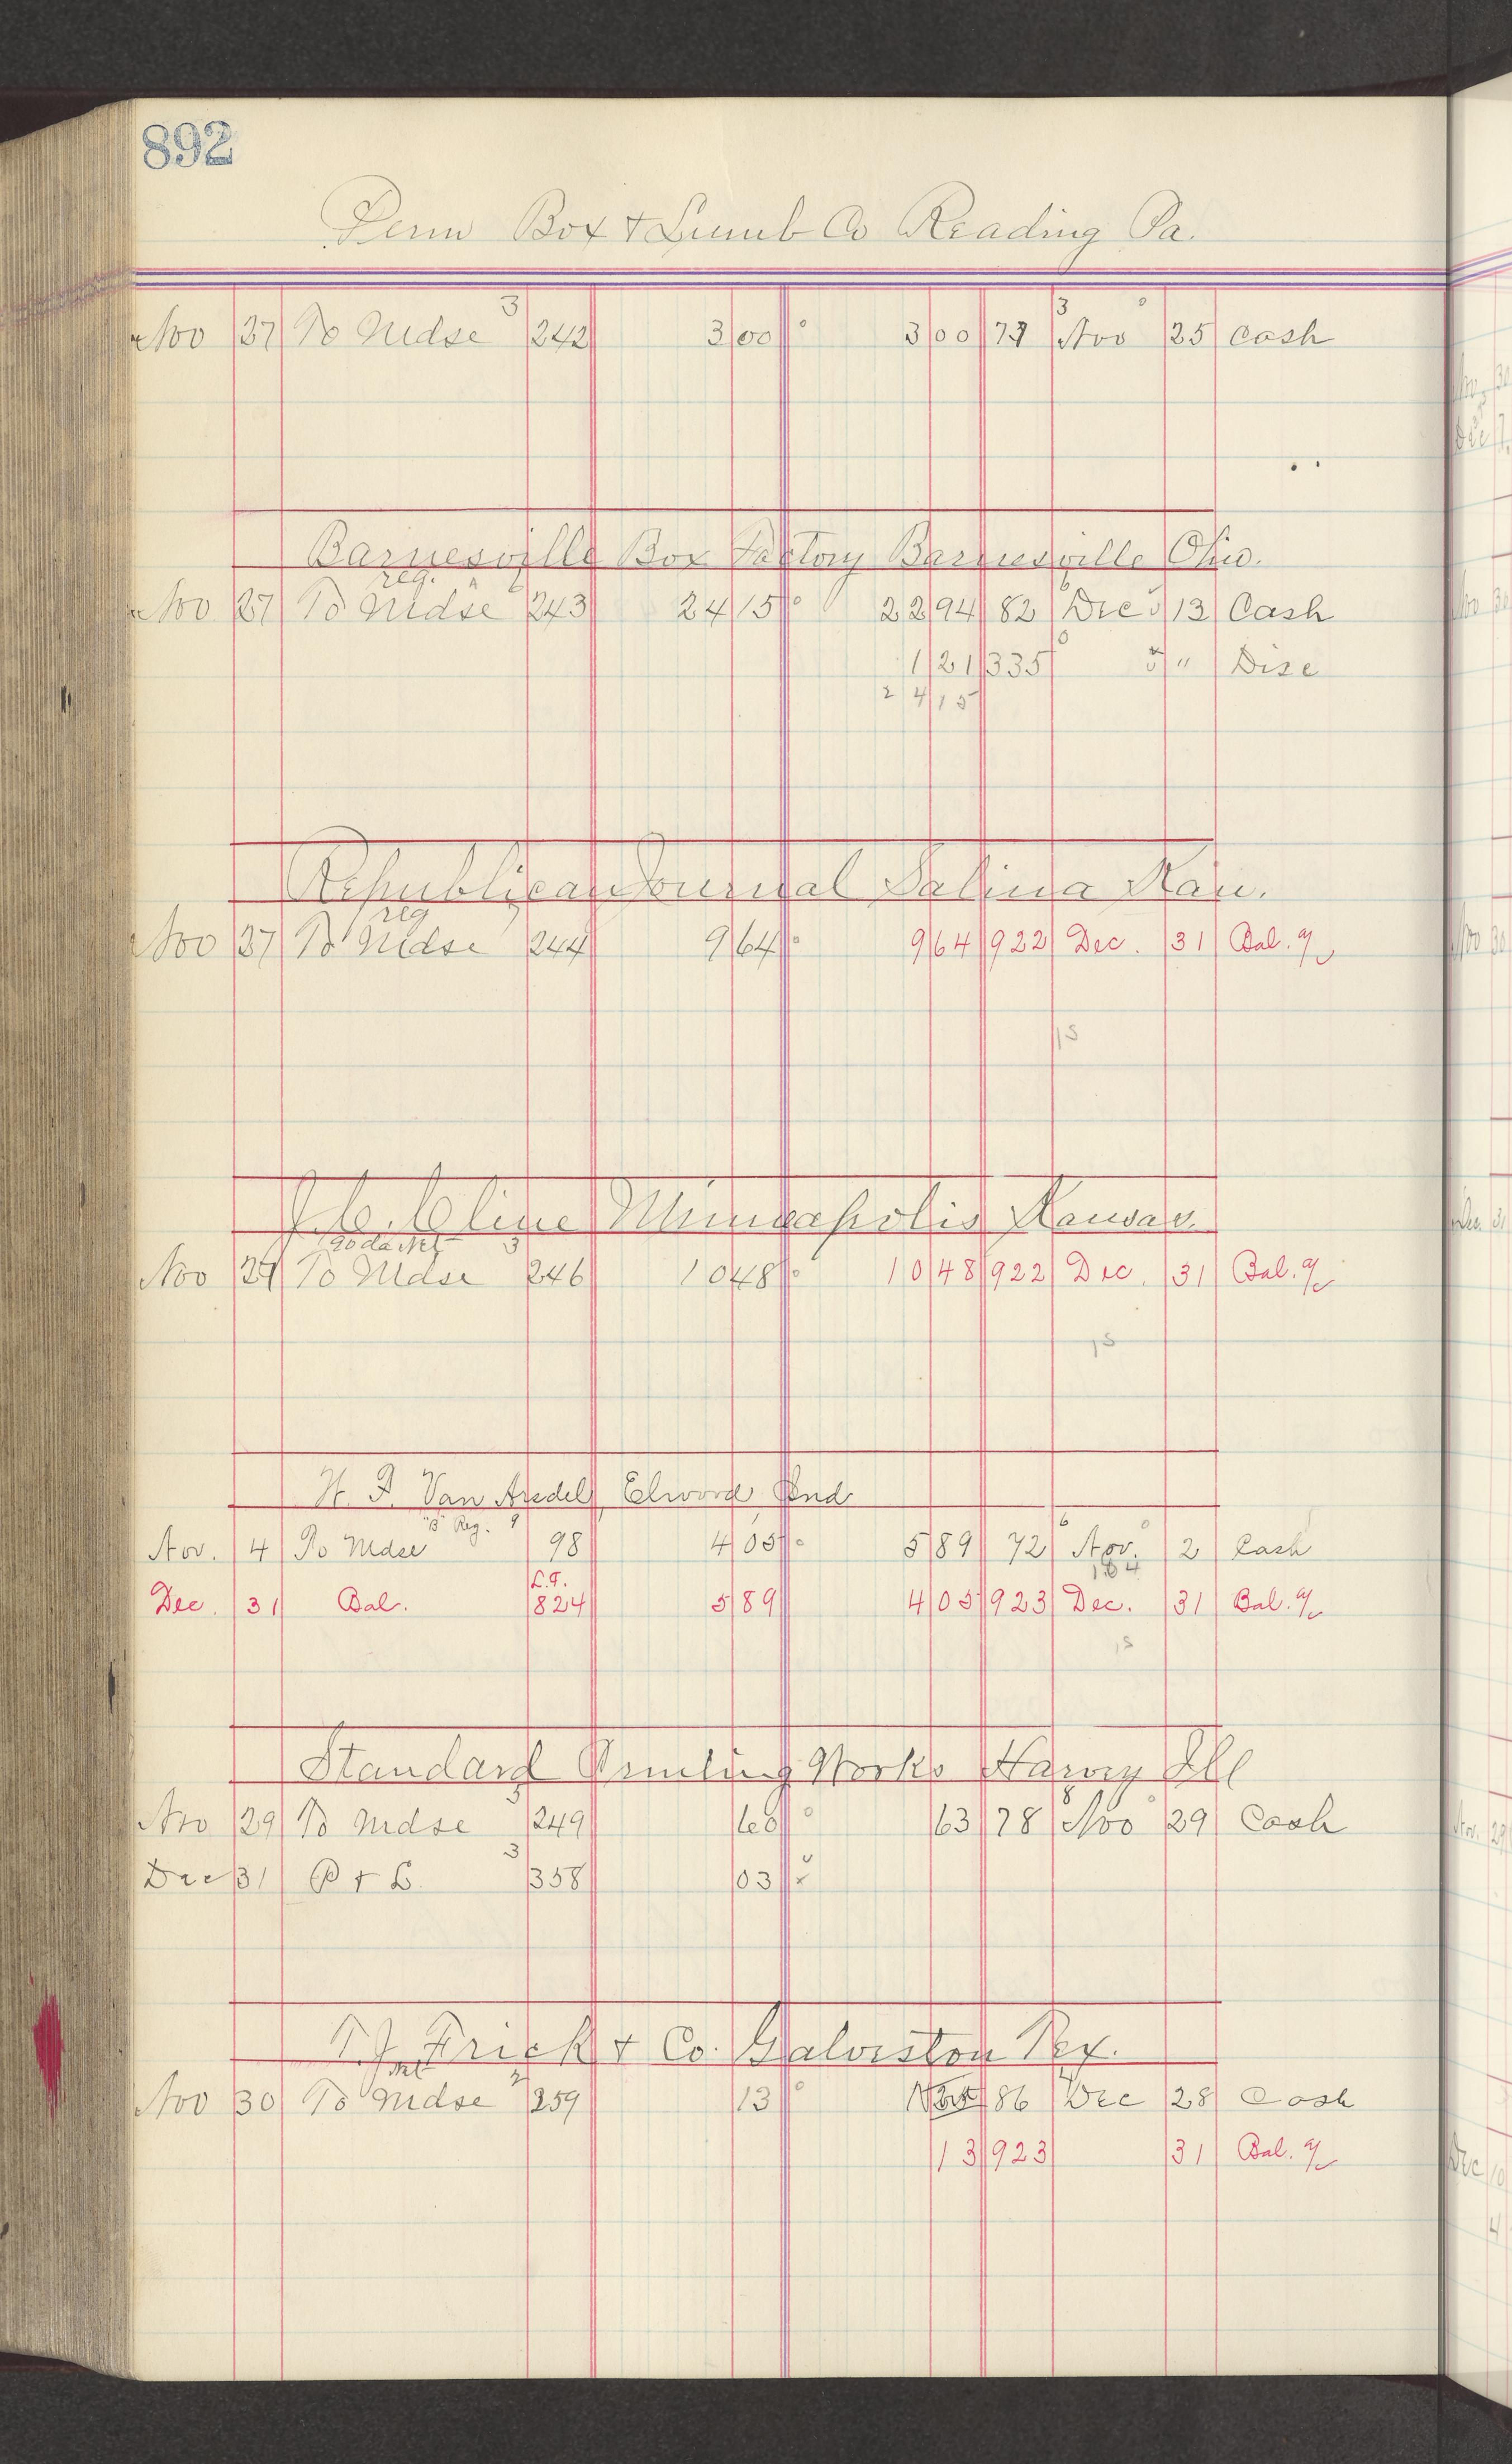 892
Penn Box & Lumb Co Reading Pa.
3 3
Nov 27 To Mdse 242 3 00 3 00 77 Nov 25 Cash
Barnesville Box Factory Barnesville Ohio.
reg.
Nov 27 To Mdse 243 24 15 22 94 82 Dec 13 Cash
1 21 335 " Disc
24 15
Republican Journal Salina Kan.
reg
Nov 27 To Mdse 244 9 64 9 64 922 Dec. 31 Bal. a/c
15
J. C. Cline Minneapolis Kansas.
90 da Net 3
Nov 27 To Mdse 246 10 48 10 48 922 Dec. 31 Bal. a/c
15
H. F. Van Arsdel, Elwood Ind
"B" Reg. 9 6
Nov. 4 To Mdse 98 4 05 5 89 72 Nov. 2 Cash
L.F. 184
Dec. 31 Bal. 824 5 89 4 05 923 Dec. 31 Bal. a/c
15
Standard Printing Works Harvey Ill
3 8
Nov 29 To Mdse 249 60 63 78 Nov 29 Cash
3
Dec 31 P & L 358 03
T.J. Frick & Co. Galveston Tex.
Net 2
Nov 30 To Mdse 259 13 86 Dec 28 Cash
13 923 31 Bal. a/c